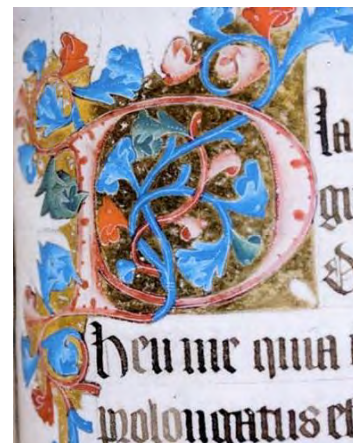 D la
gu
heu me quia
prolongatus